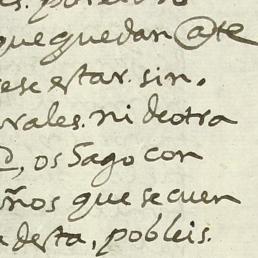 que quedan @te
ese estar. sin.
rales. ni de otra
os 5ago con
ños que se cuen
desta, pobleis.